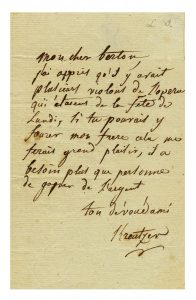 mon cher berton,
j'ai appris qu'il y avait
plusieurs violons de l'opera
qui etaient de la fete de
Lundi, si tu pouvais y
fourer mon frere cela me
ferait grand plaisir, il a
besoin plus que personne
de gagner de l'argent
ton dévoué ami
Kreutzer